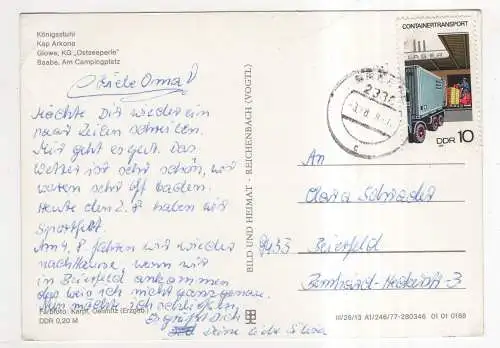 Königsstuhl
Kap Arkona
Glowe, KG „Ostseeperle"
Baabe, Am Campingplatz
Liebe Oma!
Möchte Dir wieder ein
paar Zeilen schreiben.
Mir geht es gut. Das
Wetter ist sehr schön, wir
waren sehr oft baden.
Heute den 2.8 haben wir
Sportfest.
Am 4.8 fahren wir wieder
nachhause, wenn wir
in Beierfeld ankommen
das weis ich nicht ganz genau.
Nun möchte ich schließen.
Es grüßt Dich
Deine liebe Silva
Farbfoto: Karpf, Oelsnitz (Erzgeb.)
DDR 0,20 M
BILD UND HEIMAT · REICHENBACH (VOGTL)
CONTAINERTRANSPORT
DDR 10
An
Clara Schrader
9433 Beierfeld
3
III/26/13 A1/246/77-280346 01 01 0188